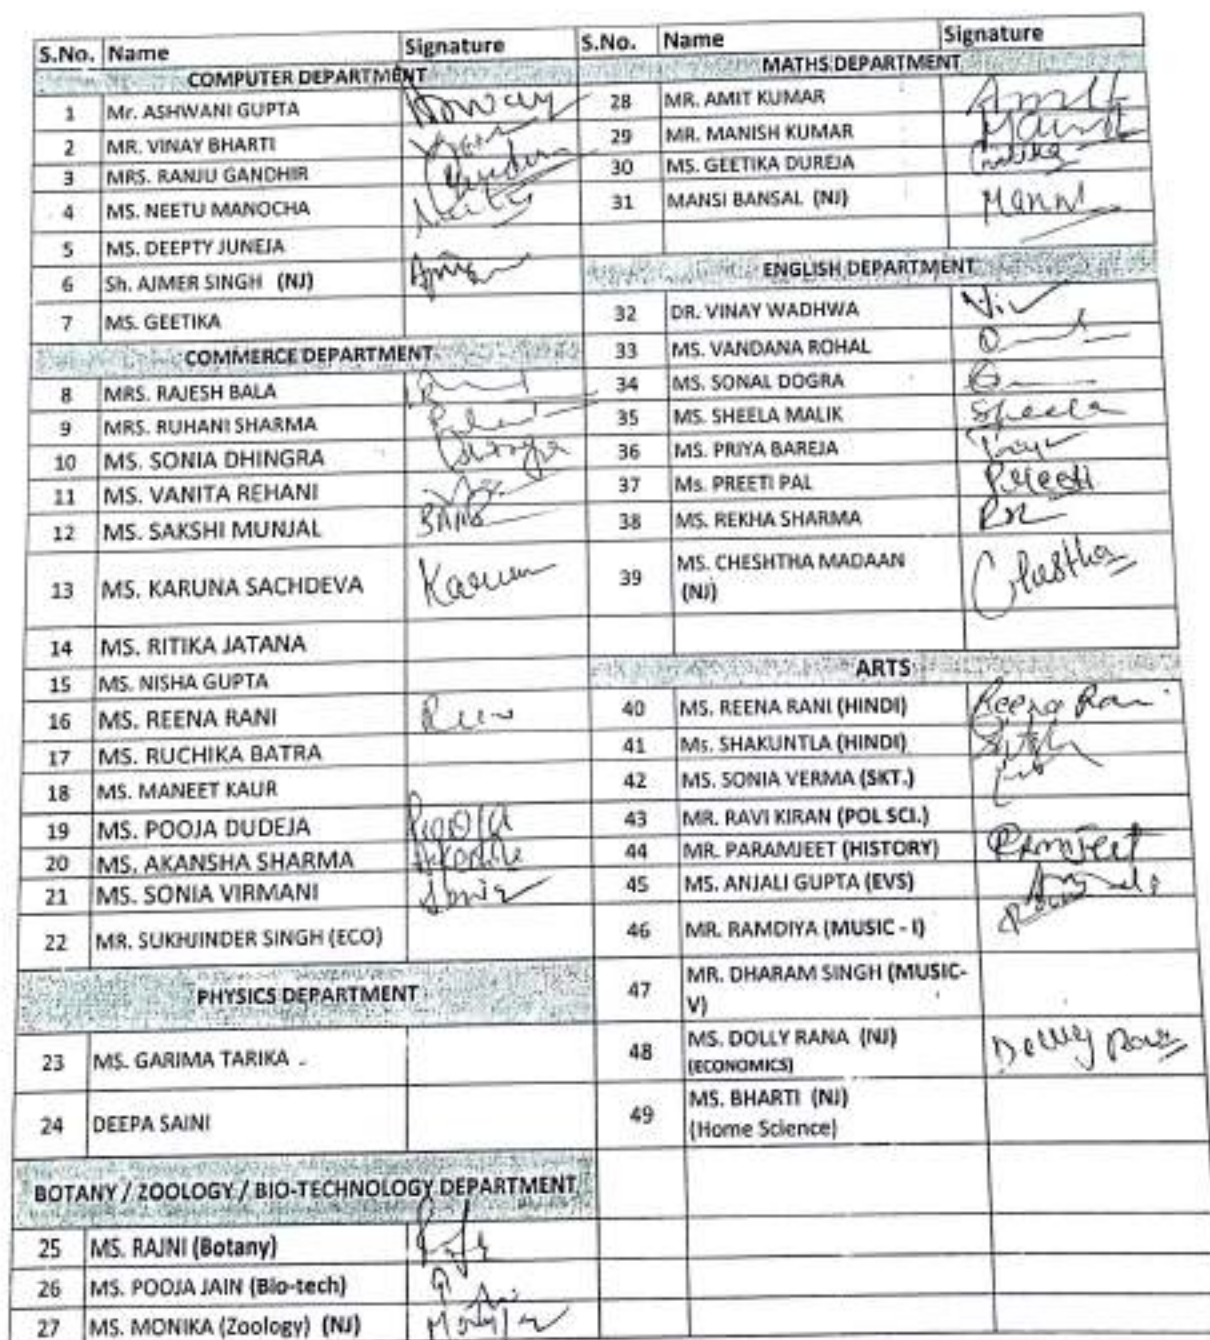 S.No. Name Signature
COMPUTER DEPARTMENT
1 Mr. ASHWANI GUPTA
2 MR. VINAY BHARTI
3 MRS. RANJU GANDHIR
4 MS. NEETU MANOCHA
5 MS. DEEPTY JUNEJA
6 Sh. AJMER SINGH (NJ)
7 MS. GEETIKA
COMMERCE DEPARTMENT
8 MRS. RAJESH BALA
9 MRS. RUHANI SHARMA
10 MS. SONIA DHINGRA
11 MS. VANITA REHANI
12 MS. SAKSHI MUNJAL
13 MS. KARUNA SACHDEVA
14 MS. RITIKA JATANA
15 MS. NISHA GUPTA
16 MS. REENA RANI
17 MS. RUCHIKA BATRA
18 MS. MANEET KAUR
19 MS. POOJA DUDEJA Pooja
20 MS. AKANSHA SHARMA
21 MS. SONIA VIRMANI Sonia
22 MR. SUKHJINDER SINGH (ECO)
PHYSICS DEPARTMENT
23 MS. GARIMA TARIKA .
24 DEEPA SAINI
BOTANY / ZOOLOGY / BIO-TECHNOLOGY DEPARTMENT
25 MS. RAJNI (Botany)
26 MS. POOJA JAIN (Bio-tech)
27 MS. MONIKA (Zoology) (NJ)
S.No. Name Signature
MATHS DEPARTMENT
28 MR. AMIT KUMAR Amit
29 MR. MANISH KUMAR
30 MS. GEETIKA DUREJA
31 MANSI BANSAL (NJ)
ENGLISH DEPARTMENT
32 DR. VINAY WADHWA
33 MS. VANDANA ROHAL
34 MS. SONAL DOGRA
35 MS. SHEELA MALIK Sheela
36 MS. PRIYA BAREJA
37 Ms. PREETI PAL Preeti
38 MS. REKHA SHARMA
39 MS. CHESHTHA MADAAN
(NJ) Cheshtha
ARTS
40 MS. REENA RANI (HINDI) Reena Rani
41 Ms. SHAKUNTLA (HINDI)
42 MS. SONIA VERMA (SKT.)
43 MR. RAVI KIRAN (POL SCI.)
44 MR. PARAMJEET (HISTORY) Paramjeet
45 MS. ANJALI GUPTA (EVS)
46 MR. RAMDIYA (MUSIC - I)
47 MR. DHARAM SINGH (MUSIC-
V)
48 MS. DOLLY RANA (NJ)
(ECONOMICS) Dolly Rana
49 MS. BHARTI (NJ)
(Home Science)